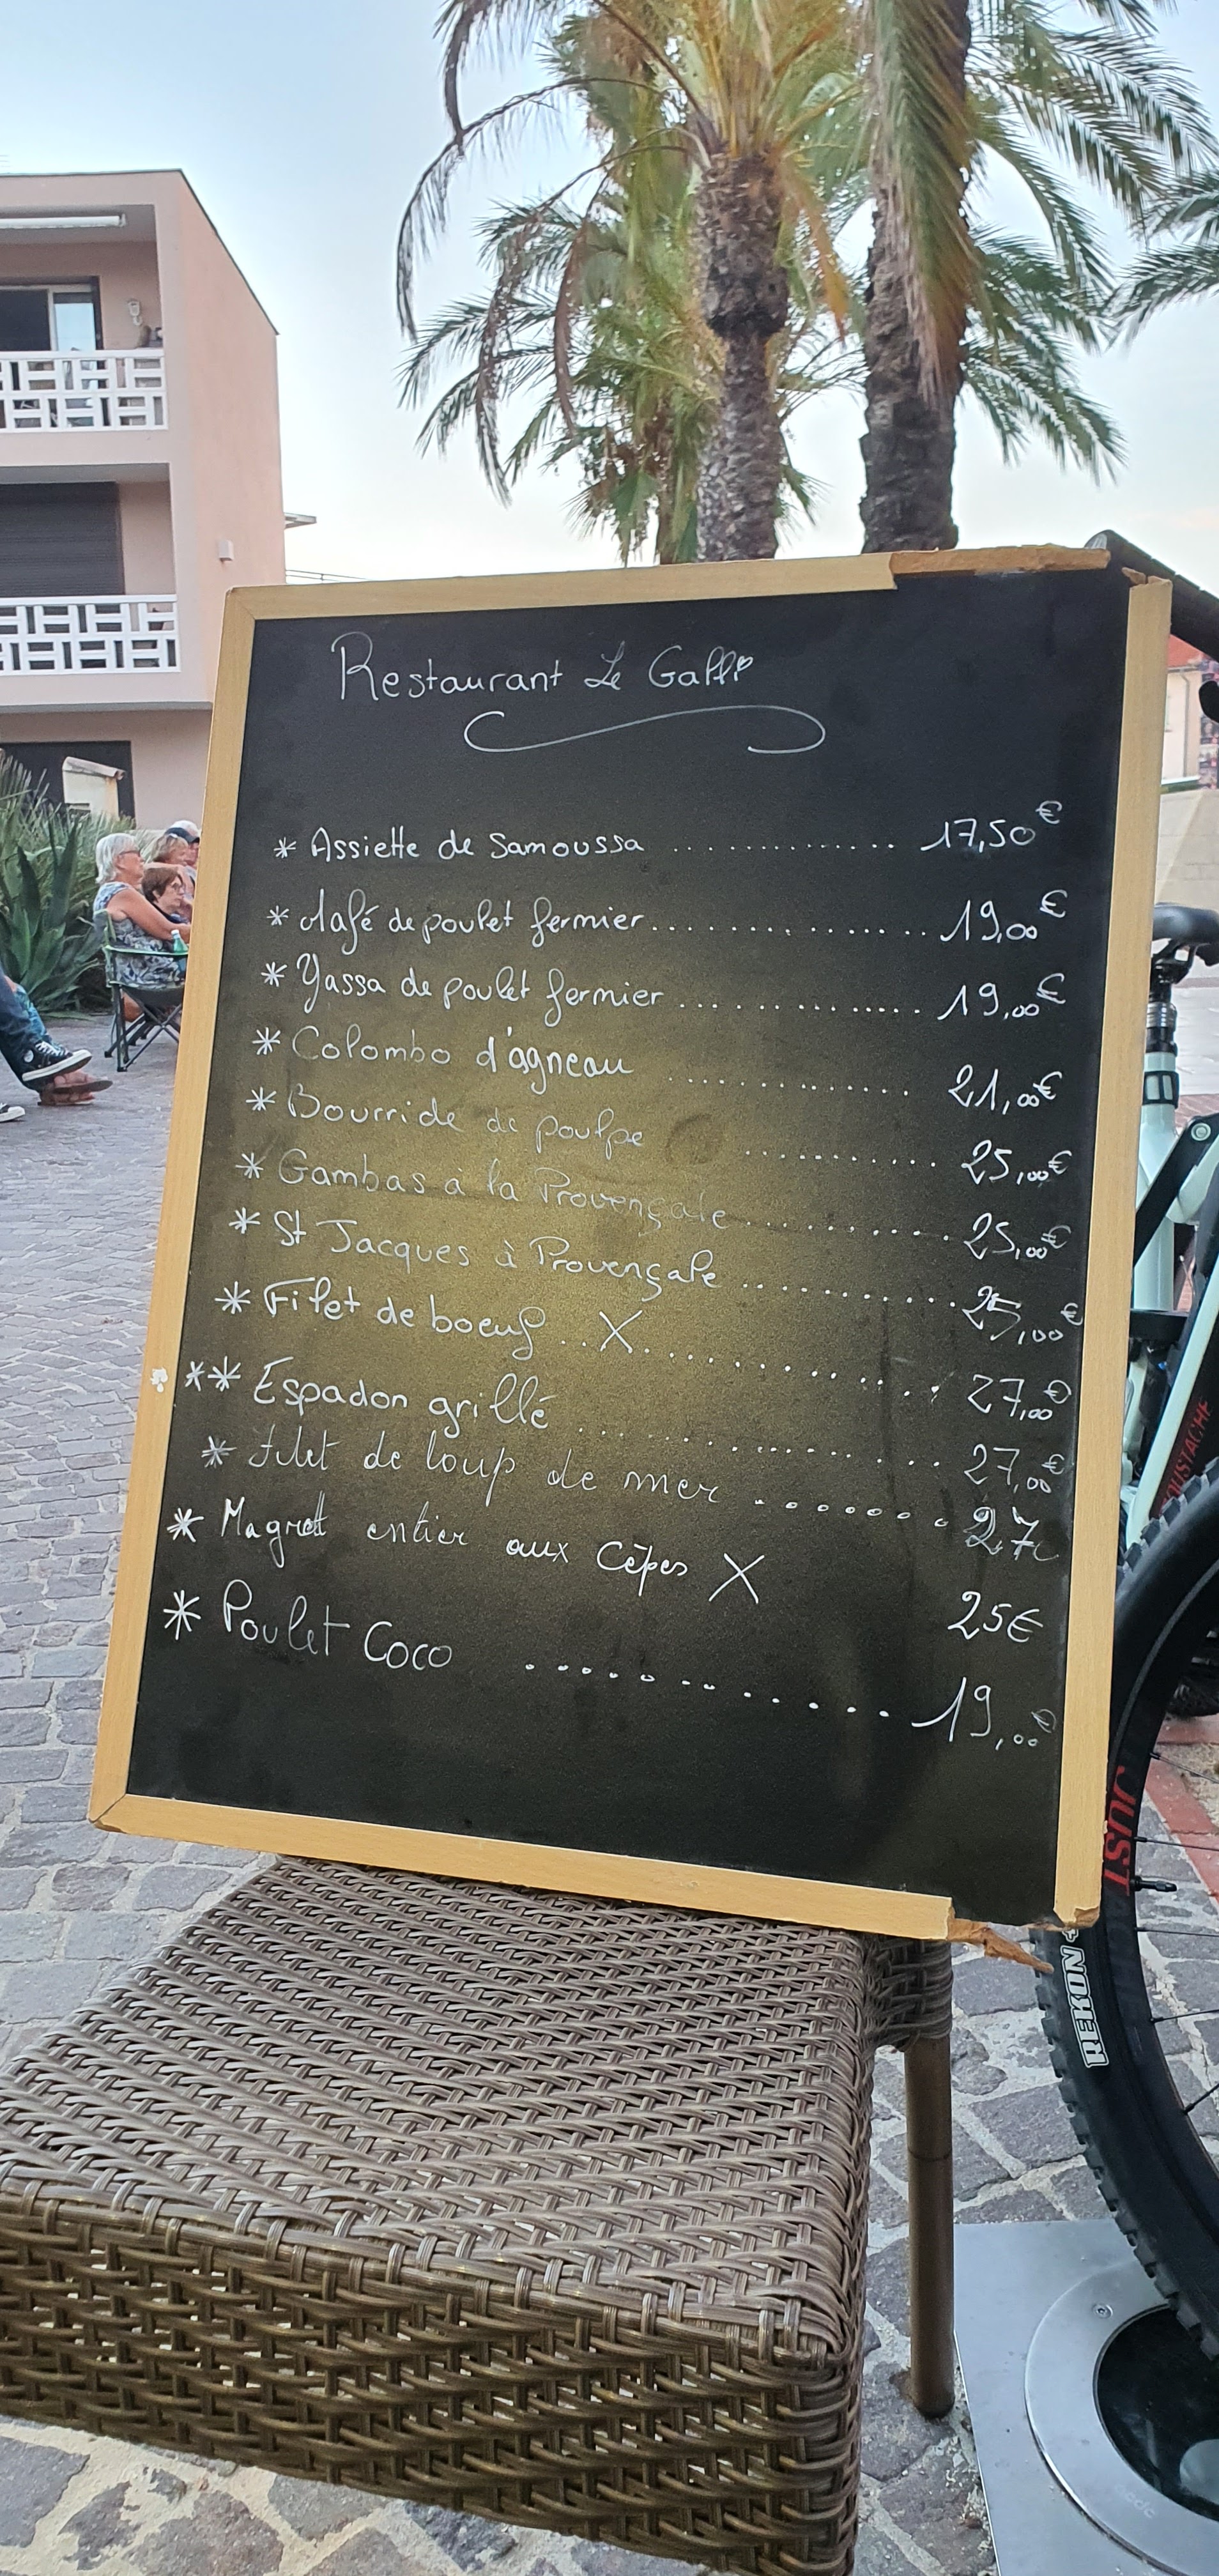 Restaurant Le Galli
* Assiette de Samoussa .............. 17,50€
* Mafé de poulet fermier ............... 19,00€
* Yassa de poulet fermier ............. 19,00€
* Colombo d'agneau ............. 21,00€
* Bourride de poulpe .......... 25,00€
* Gambas à la Provençale ........... 25,00€
* St Jacques à Provençale ............ 25,00€
* Filet de boeuf .. X ............. 27,00€
** Espadon grillé ................ 27,00€
* Filet de loup de mer ....... 27€
* Magret entier aux Cèpes X 25€
* Poulet Coco ............. 19,00€
MOUSTACHE
JUST
REKON +